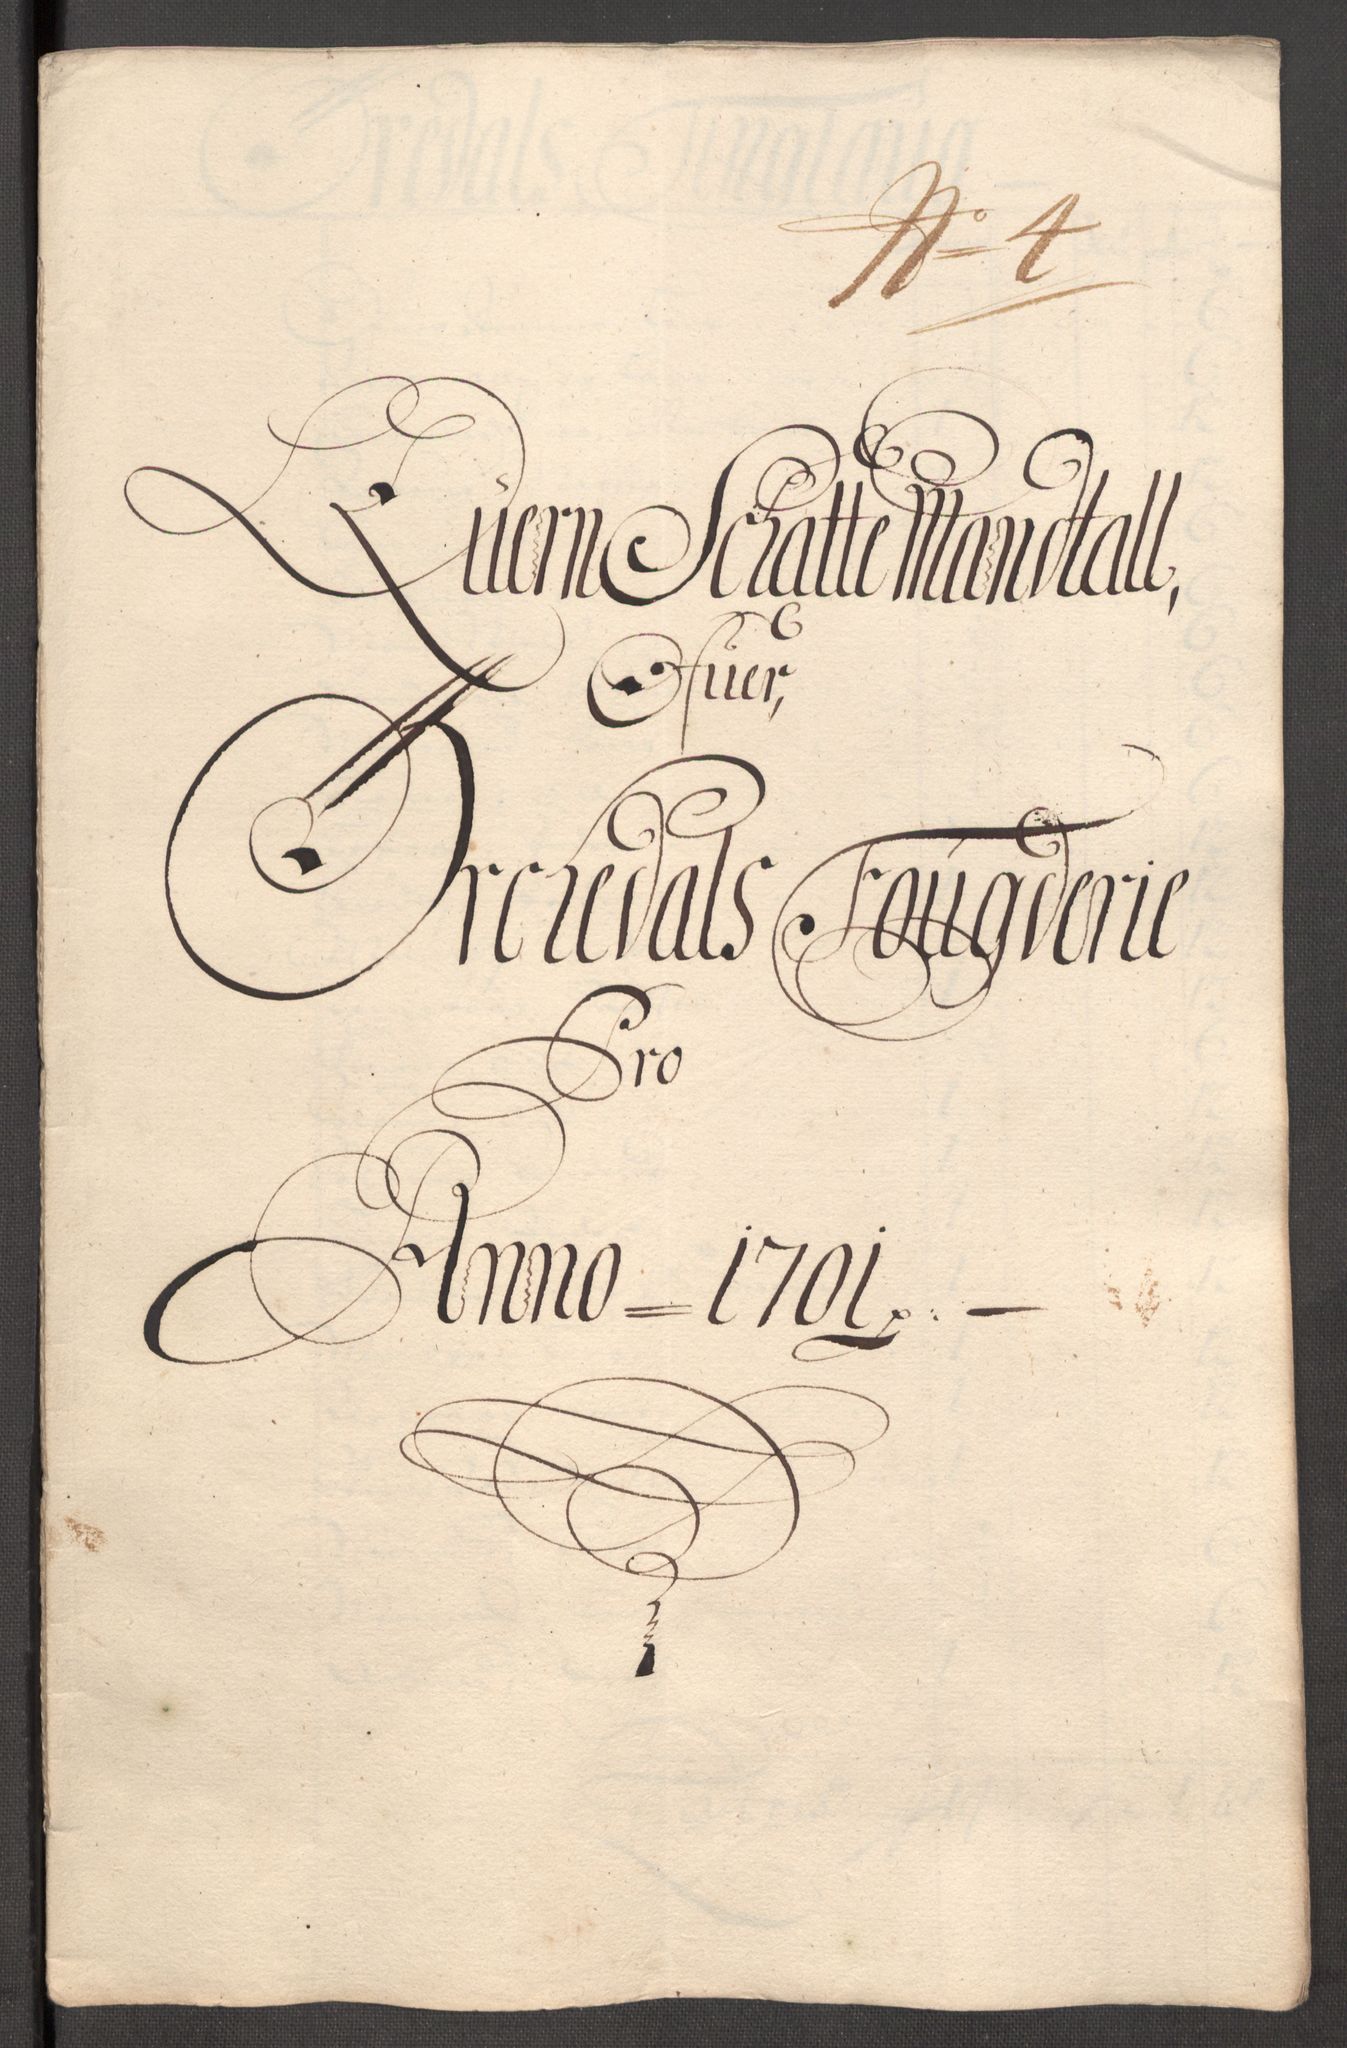 No 4
Quern Schatte Mandtall,
Ofuer,
Orchedals Fougderie
Pro
Anno = 1701